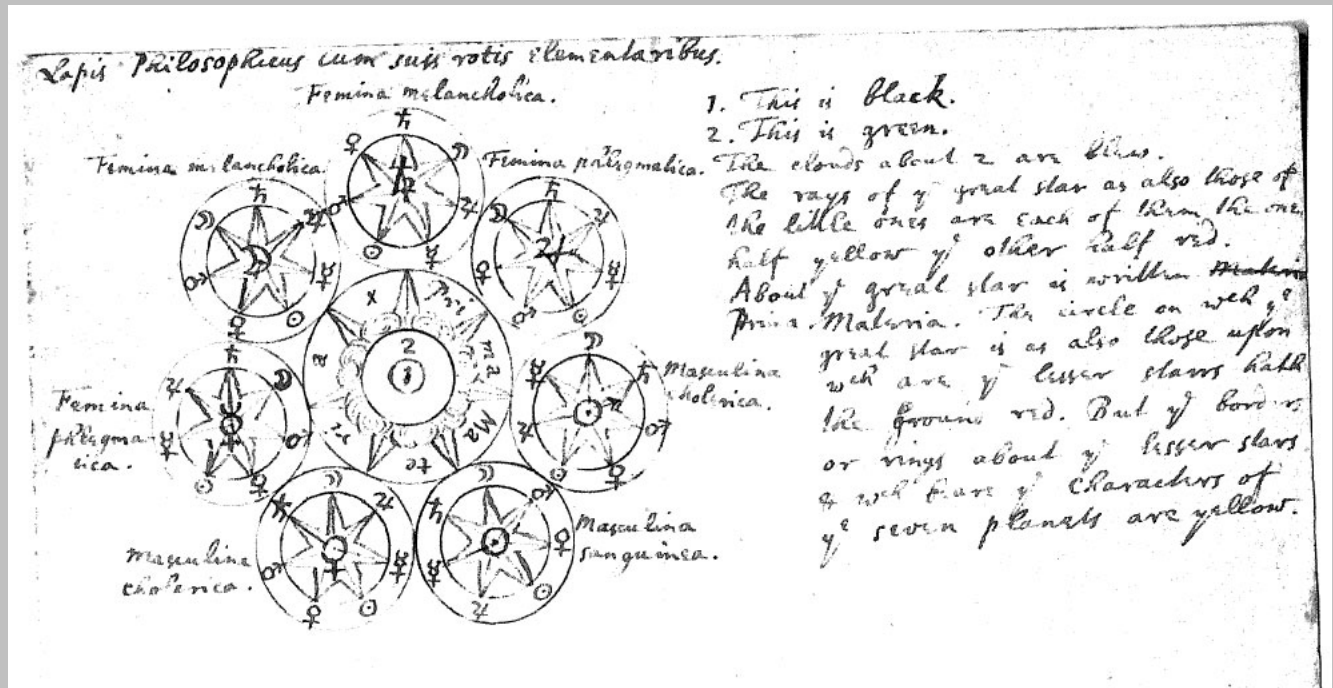 Lapis Philosophicus cum suis rotis elementaribus.
Femina melancholica.
Femina melancholica.
Femina phlegmatica.
Femina
phlegma
tica.
Masculina
cholerica.
Masculina
cholerica.
Masculina
sanguinea.
♄ ☽ ♃ ☿ ☉ ♂ ♀
Pri
ma
Ma
te
2
1
1. This is black.
2. This is green.
The clouds about 2 are blew.
The rays of yᵉ great star as also those of
the little ones are each of them the one
half yellow yᵉ other half red.
About yᵉ great star is written
Prima Materia. The circle on wch yᵉ
great star is as also those upon
wch are yᵉ lesser starrs hath
the ground red. But yᵉ borders
or rings about yᵉ lesser stars
& wch beare yᵉ characters of
yᵉ seven planets are yellow.